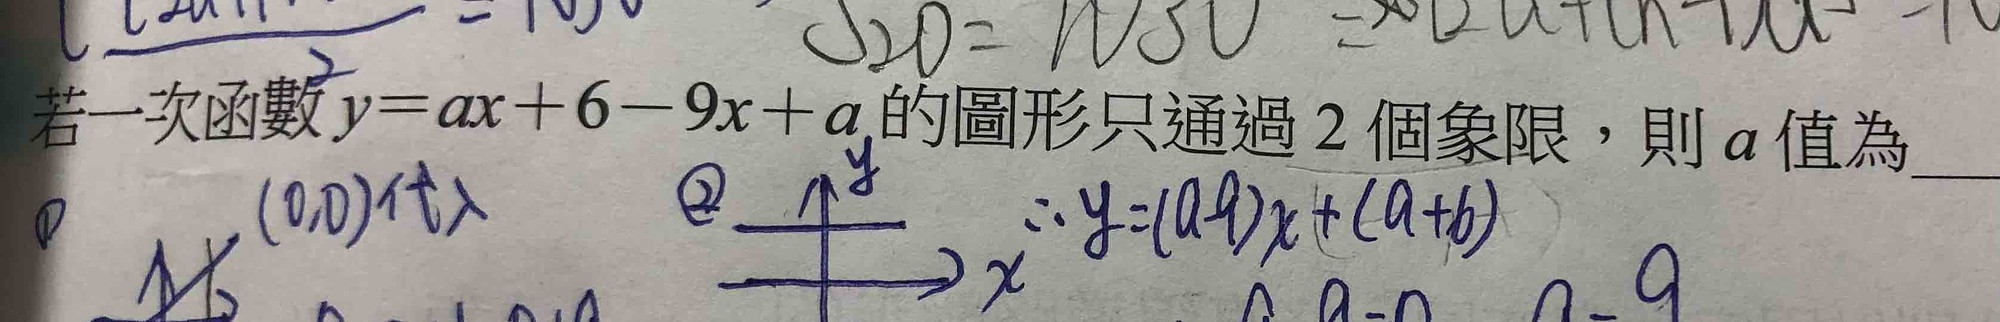 S20 = 1050 =
2
若一次函數 y=ax+6-9x+a 的圖形只通過 2 個象限，則 a 值為
① (0,0)代入 ② y x ∴ y=(a-9)x+(a+6)
a-9=0 a=9